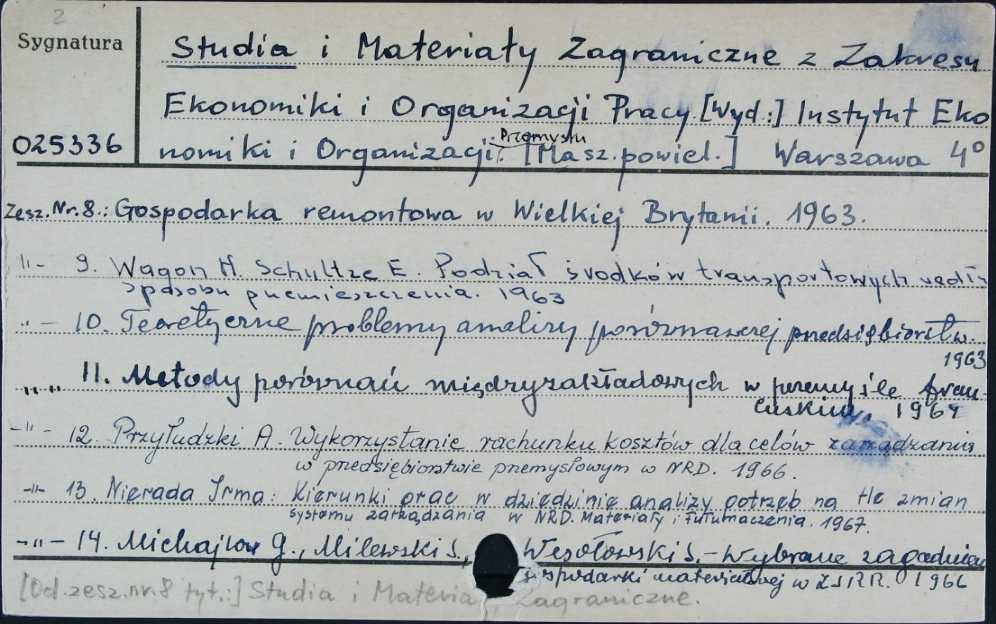 2
Sygnatura
025336
Studia i Materiały Zagraniczne z Zakresu
Ekonomiki i Organizacji Pracy. [Wyd.:] Instytut Eko
Przemysłu
nomiki i Organizacji. [Masz.powiel.] Warszawa 4°
Zesz.Nr.8.: Gospodarka remontowa w Wielkiej Brytanii. 1963.
"- 9. Wagon H. Schultze E. Podział środków transportowych
sposobu przemieszczenia. 1963
"- 10. Teoretyczne problemy analizy porównawczej przedsiębiorstw.
1963
"" 11. Metody porównań międzyzakładowych w przemyśle fran-
cuskim. 1964
-"- 12. Przyłudzki A. Wykorzystanie rachunku kosztów dla celów zarządzania
w przedsiębiorstwie przemysłowym w NRD. 1966.
-"- 13. Nierada Irma: Kierunki prac w dziedzinie analizy potrzeb na tle zmian
systemu zarządzania w NRD. Materiały i tłumaczenia. 1967.
-"- 14. Michajłow G., Milewski S., Wesołowski S. - Wybrane zagadnien
gospodarki materiałowej w ZSRR. 1966
[Od.zesz.nr.8 tyt.:] Studia i Materiały Zagraniczne.